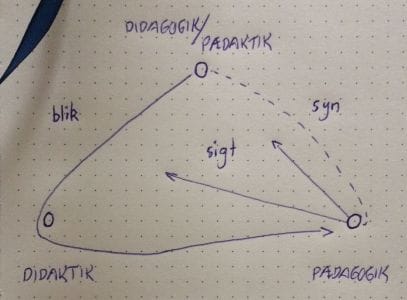 DIDAGOGIK/
PÆDAKTIK
blik
syn
sigt
DIDAKTIK
PÆDAGOGIK